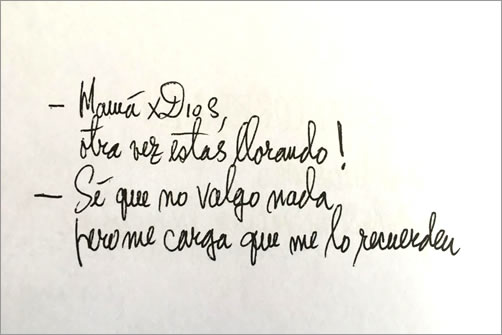 – Mamá xDios,
otra vez estás llorando!
– Sé que no valgo nada
pero me carga que me lo recuerden